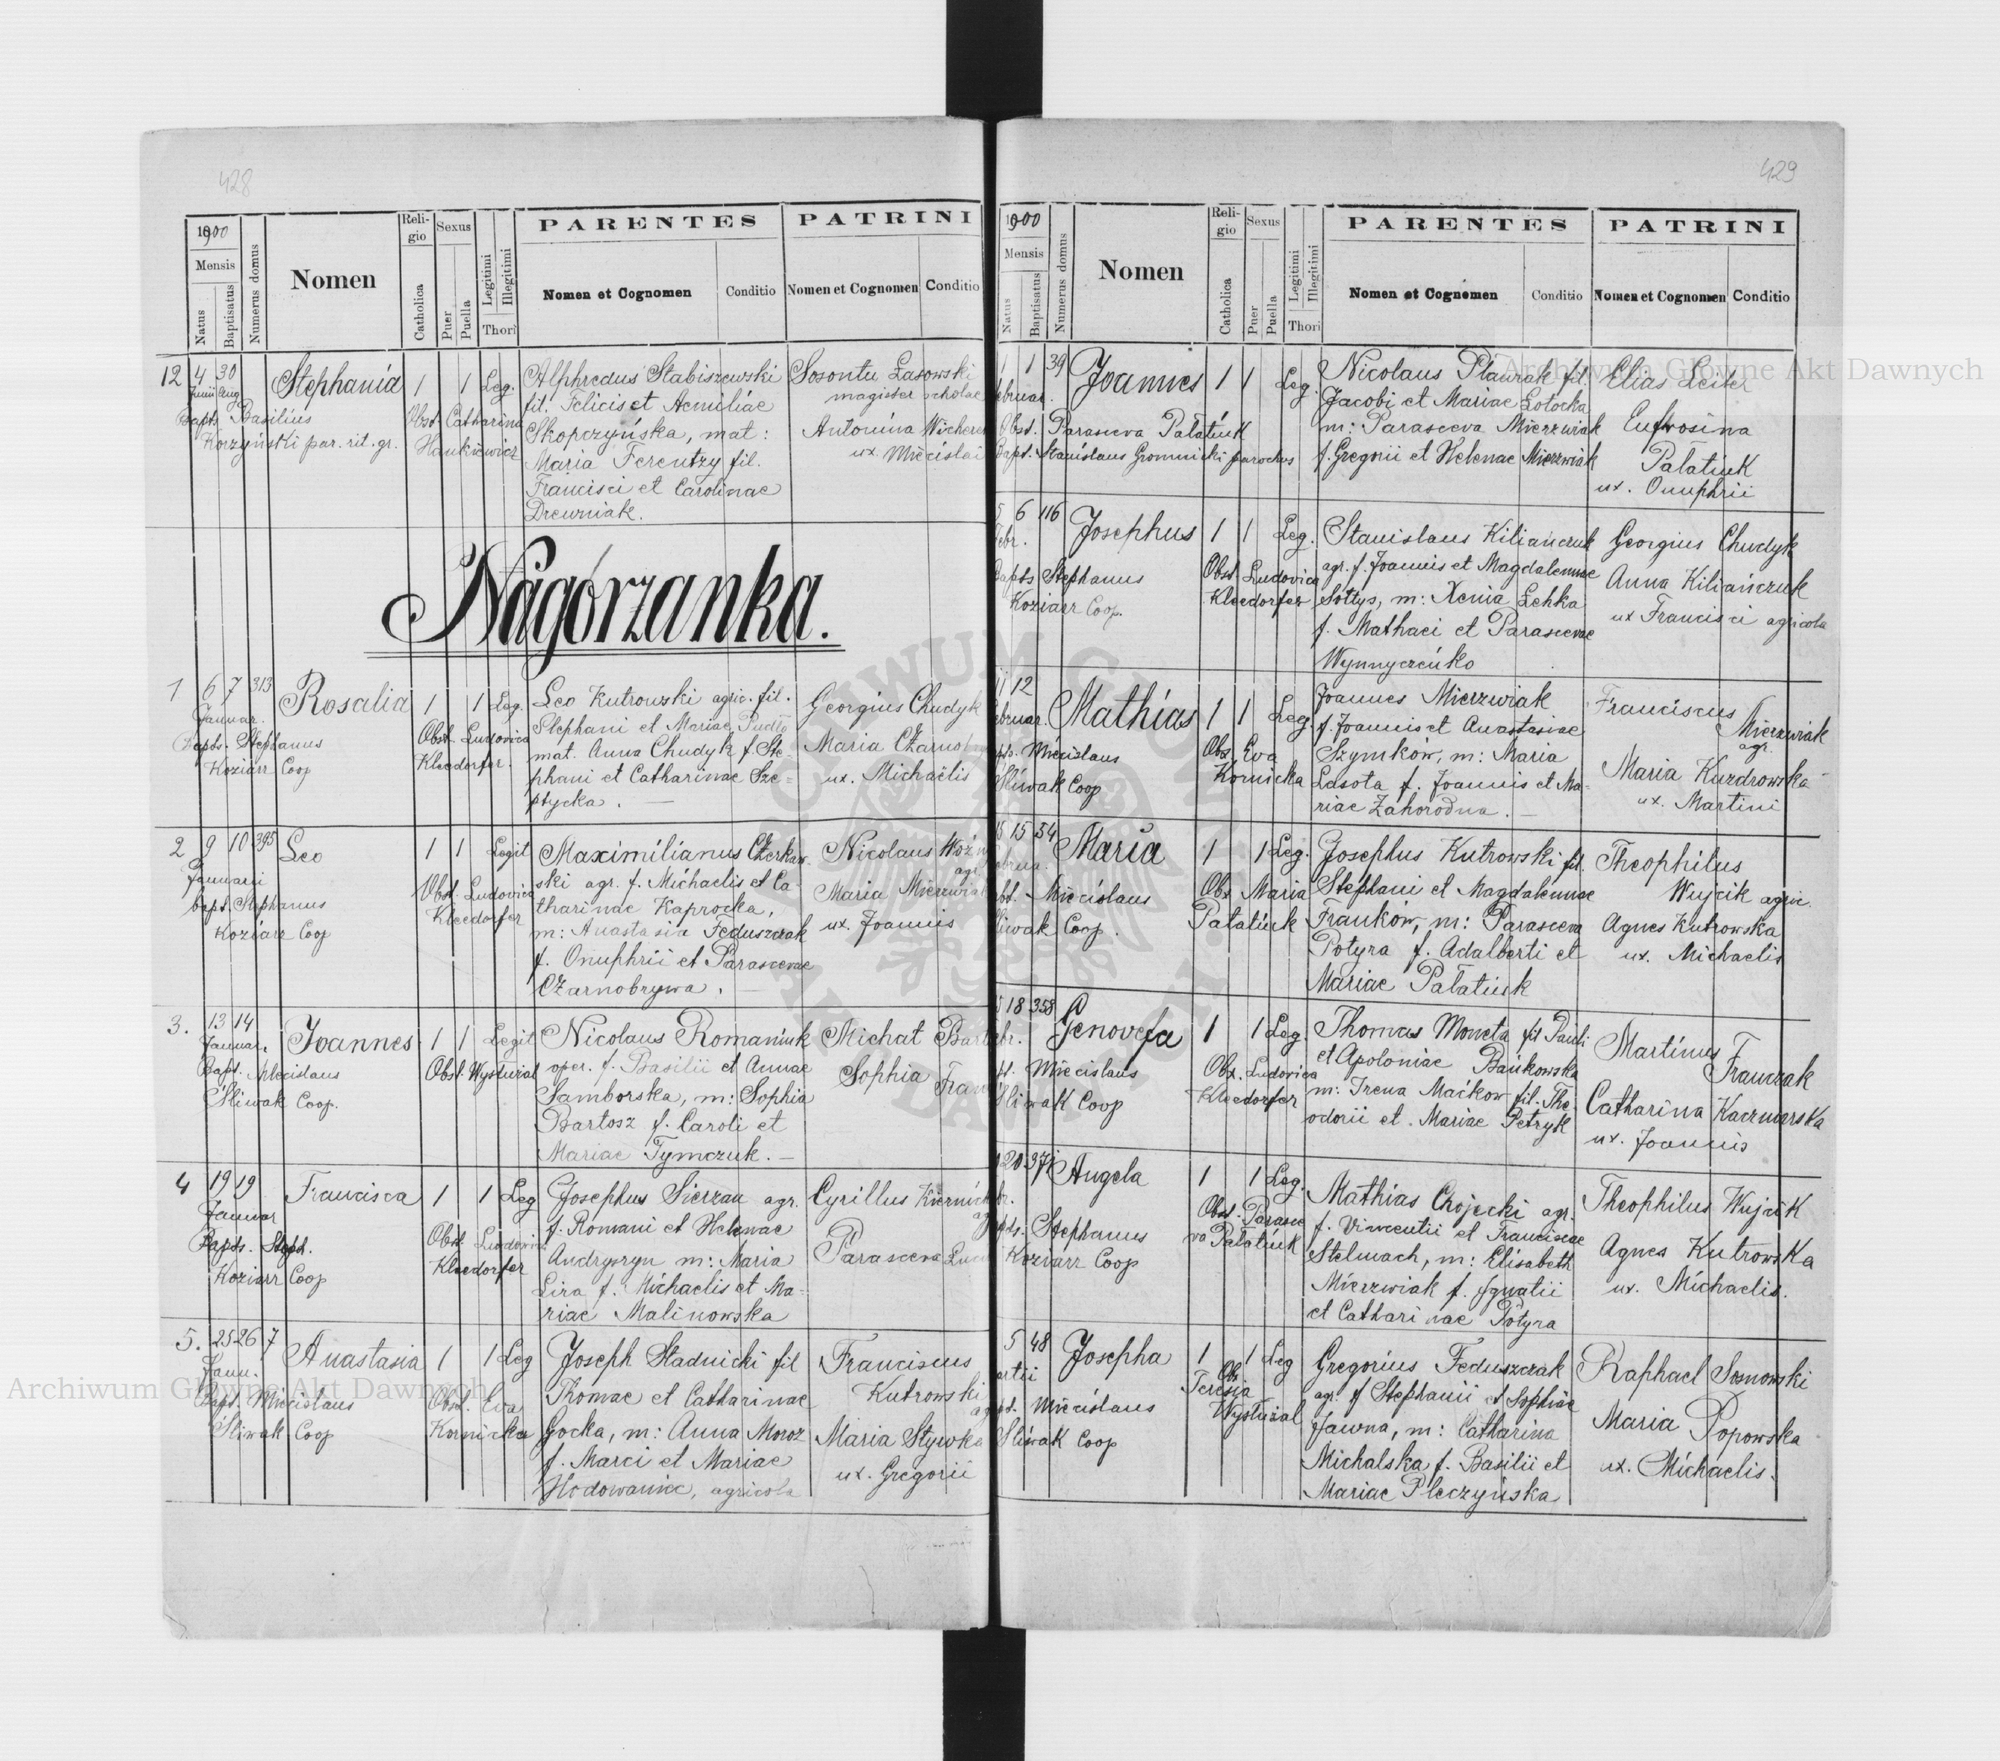 428
1900
Mensis
Natus
Baptisatus
Numerus domus
Nomen
Religio
Catholica
Sexus
Puer
Puella
Legitimi
Illegitimi
Thori
PARENTES
Nomen et Cognomen
Conditio
PATRINI
Nomen et Cognomen
Conditio
12 4 30 Stephania 1 1 Leg.
Junii Aug.
Bapts Basilius
Korzyński par. rit. gr.
Obst. Catharina
Hankiewicz
Alphredus Stabiszewski
fil. Felicis et Aemiliae
Skopczyńska, mat:
Maria Ferentzy fil.
Francisci et Carolinae
Drewniak.
Sosontu Lasowski
magister scholae
Antonina
ux. Miecislai
Nagórzanka.
1 6 7 313 Rosalia 1 1 Leg.
Januar.
Bapts. Stephanus
Koziarr Coop
Obst. Ludovica
Kleedorfer.
Leo Kutrowski agric. fil.
Stephani et Mariae Pudło
mat. Anna Chudyk f. Ste-
phani et Catharinae Sze-
ptycka. —
Georgius Chudyk
Maria
ux. Michaëlis
2 9 10 395 Leo 1 1 Legit
Januarii
bapt. Stephanus
Koziarr Coop
Obst. Ludovica
Kleedorfer
Maximilianus Czerkaw-
ski agr. f. Michaelis et Ca-
tharinae Kaprocka,
m: Anastasia Feduszczak
f. Onuphrii et Parascevae
Czarnobrywa. —
Nicolaus
agr
Maria Mierzwiak
ux. Joannis
3. 13 14 Joannes 1 1 Legit
Januar.
Bapt. Miecislaus
Śliwak Coop.
Obst. Wystuzial
Nicolaus Romaniuk
oper. f. Basilii et Annae
Samborska, m: Sophia
Bartosz f. Caroli et
Mariae Tymczuk. —
Michał
Sophia
4 19 19 Francisca 1 1 Leg
Januar
Bapts. Steph.
Koziarr Coop
Obst. Ludovica
Kleedorfer
Josephus Sierzan agr.
f. Romani et Helenae
Andryszyn m: Maria
Lira f. Michaelis et Ma-
riae Malinowska
Cyrillus
Parasceva
5. 25 26 7 Anastasia 1 1 Leg
Janu.
Bapt. Miecislaus
Śliwak Coop
Obst. Eva
Kornicka
Joseph Stadnicki fil
Thomae et Catharinae
Gocka, m: Anna Moroz
f. Marci et Mariae
Hodowaniec, agricola
Franciscus
Kutrowski
Maria Stywka
ux. Gregorii
429
1900
Mensis
Natus
Baptisatus
Numerus domus
Nomen
Religio
Catholica
Sexus
Puer
Puella
Legitimi
Illegitimi
Thori
PARENTES
Nomen et Cognomen
Conditio
PATRINI
Nomen et Cognomen
Conditio
1 1 39 Joannes 1 1 Leg.
Obst. Parasceva Pałatiuk
Bapt. Stanislaus Gromnicki parochus
Nicolaus Plawrak fil.
Jacobi et Mariae Łotocka
m: Parasceva Mierzwiak
f. Gregorii et Helenae Mierzwiak
Elias Leiter
Eufrosina
Pałatiuk
ux. Onuphrii
6 116 Josephus 1 1 Leg.
Febr.
Bapts Stephanus
Koziarr Coop.
Obst. Ludovica
Kleedorfer
Stanislaus Kilianczuk
agr. f. Joannis et Magdalennae
Sołtys, m: Xenia Lehka
f. Mathaei et Parascevae
Wynnyczeńko
Georgius Chudyk
Anna Kiliańczuk
ux Francisci agricola
12 Mathias 1 1 Leg.
Miecislaus
Śliwak Coop
Obs. Eva
Kornicka
Joannes Mierzwiak
f. Joannis et Anastasiae
Szymków, m: Maria
Lasota f. Joannis et Ma-
riae Zahorodna. —
Franciscus
Mierzwiak
agr.
Maria Kuzdrowska
ux. Martini
15 54 Maria 1 1 Leg.
Miecislaus
Śliwak Coop.
Obs Maria
Pałatiuk
Josephus Kutrowski fil.
Stephani et Magdalennae
Franków, m: Parasceva
Potyra f. Adalberti et
Mariae Pałatiuk
Theophilus
Wujcik agric.
Agnes Kutrowska
ux. Michaelis
18 358 Genovefa 1 1 Leg.
Miecislaus
Śliwak Coop
Obs. Ludovica
Kleedorfer
Thomas Moneta fil Pauli
et Apoloniae Bańkowska
m: Irena Maćkow fil. The-
odorii et Mariae Petryk
Martinus
Franczak
Catharina Kaczmarska
ux. Joannis
20 371 Angela 1 1 Leg.
Stephanus
Koziarr Coop
Obst. Parasce
va Pałatiuk
Mathias Chojecki agr.
f. Vincentii et Franciscae
Stelmach, m: Elisabeth
Mierzwiak f. Ignatii
et Catharinae Potyra
Theophilus Wujcik
Agnes Kutrowska
ux. Michaelis.
5 48 Josepha 1 1 Leg
Miecislaus
Śliwak Coop
Obs
Teresia
Wystuzial
Gregorius Feduszczak
agr f Stephanii et Sophiae
Jawna, m: Catharina
Michalska f. Basilii et
Mariae Pleczyńska
Raphael Sosnowski
Maria Popowska
ux. Michaelis.
Archiwum Główne Akt Dawnych
Archiwum Główne Akt Dawnych